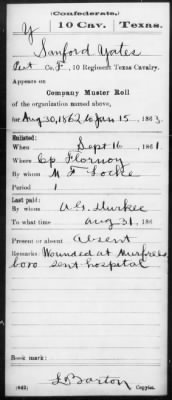 (Confederate.)
Y | 10 Cav. | Texas.
Sanford Yates
Pvt Co. F, 10 Regiment Texas Cavalry.
Appears on
Company Muster Roll
of the organization named above,
for Aug 30, 1862 to Jan 15, 1863.
Enlisted:
When Sept 16, 1861.
Where Cp Flornoy
By whom M F Locke
Period 1
Last paid:
By whom A. G. Durkee
To what time Aug 31, 186
Present or absent Absent
Remarks: Wounded at Murfrees
boro sent hospital
Book mark:
(642) L Barton
Copyist.